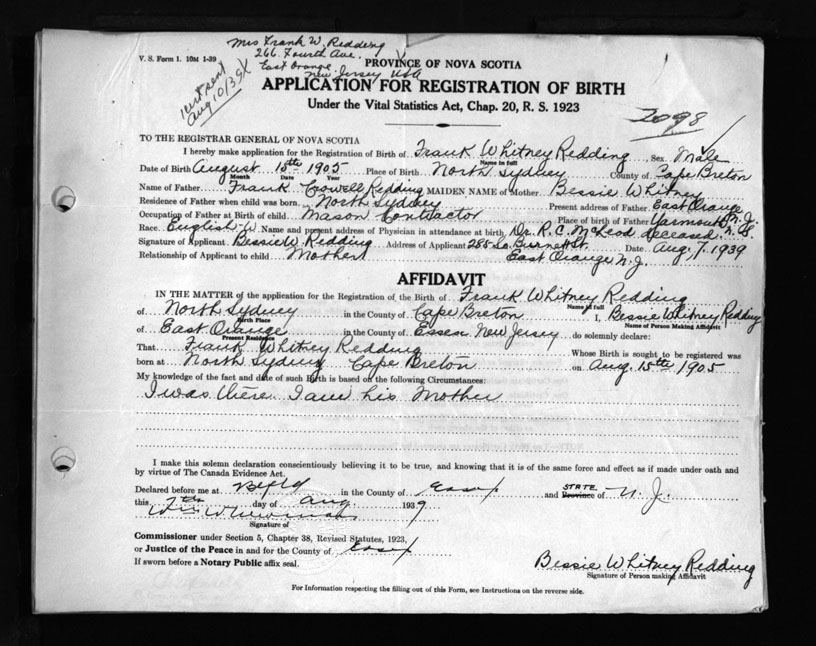 Mrs Frank W. Redding
266 Fourth Ave.
East Orange
New Jersey USA
V. S. Form 1. 10M 1-39
PROVINCE OF NOVA SCOTIA
APPLICATION FOR REGISTRATION OF BIRTH
Under the Vital Statistics Act, Chap. 20, R. S. 1923
sent
Aug 10/39
2098
TO THE REGISTRAR GENERAL OF NOVA SCOTIA
I hereby make application for the Registration of Birth of Frank Whitney Redding, Sex Male
Name in full
Date of Birth August 15th 1905 Place of Birth North Sydney County of Cape Breton
Month Date Year
Name of Father Frank Crowell Redding MAIDEN NAME of Mother Bessie Whitney
Residence of Father when child was born North Sydney Present address of Father East Orange N.J.
Occupation of Father at Birth of child Mason Contractor Place of birth of Father Yarmouth N.S.
Race English W. Name and present address of Physician in attendance at birth Dr. R. C. McLeod deceased
Signature of Applicant Bessie W. Redding Address of Applicant 285 So. Burnett St. Date Aug. 7, 1939
Relationship of Applicant to child Mother East Orange N.J.
AFFIDAVIT
IN THE MATTER of the application for the Registration of the Birth of Frank Whitney Redding
Name in full
of North Sydney in the County of Cape Breton I, Bessie Whitney Redding
Birth Place Name of Person Making Affidavit
of East Orange in the County of Essex New Jersey do solemnly declare:
Present Residence
That Frank Whitney Redding Whose Birth is sought to be registered was
born at North Sydney Cape Breton on Aug. 15th 1905
My knowledge of the fact and date of such Birth is based on the following Circumstances:
I was there I am his Mother
I make this solemn declaration conscientiously believing it to be true, and knowing that it is of the same force and effect as if made under oath and
by virtue of The Canada Evidence Act.
Declared before me at in the County of Essex and STATE Province of N. J.
this 7th day of Aug. 1939
Signature of
Commissioner under Section 5, Chapter 38, Revised Statutes, 1923,
or Justice of the Peace in and for the County of Essex
If sworn before a Notary Public affix seal.
Bessie Whitney Redding
Signature of Person making Affidavit
For Information respecting the filling out of this Form, see Instructions on the reverse side.